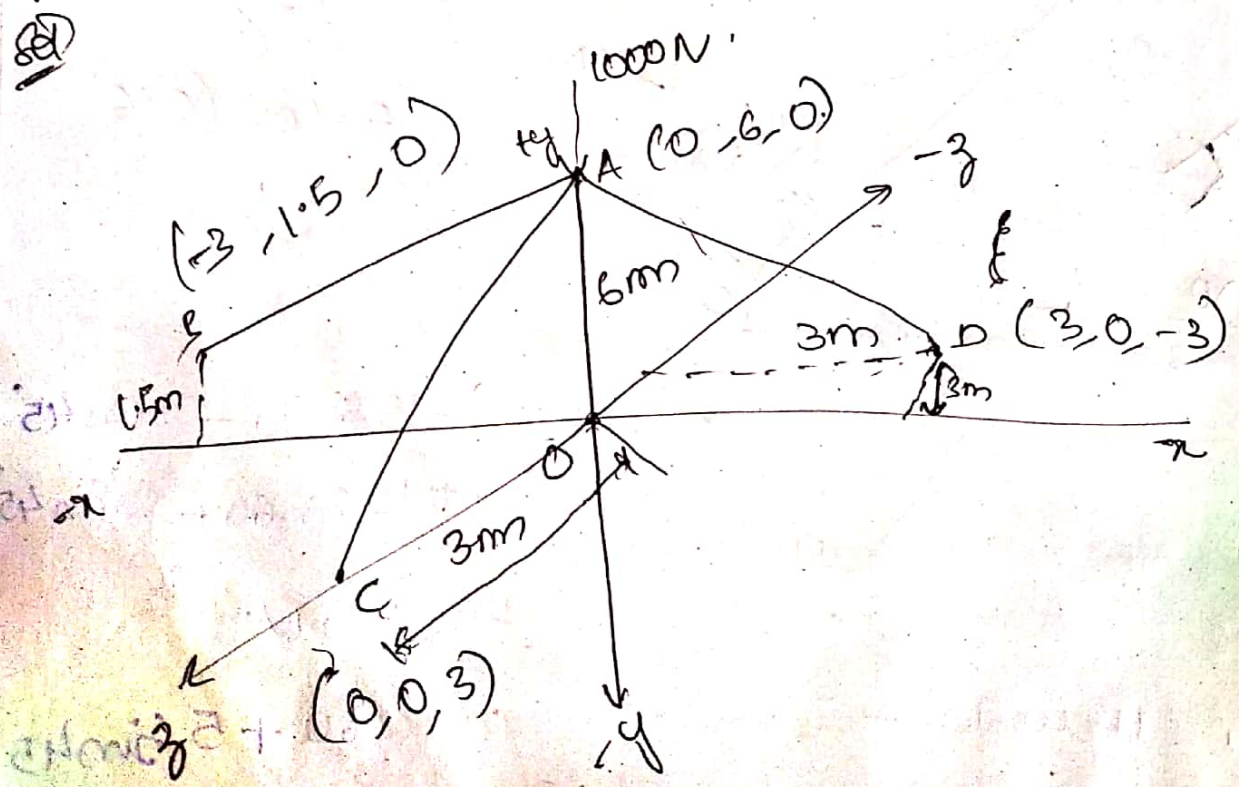 Sol
1000N.
+y A (0,6,0)
-z
(-3,1.5,0)
6m
3m D (3,0,-3)
B
1.5m
3m
O
x
-x
3m
C
(0,0,3)
z
-y